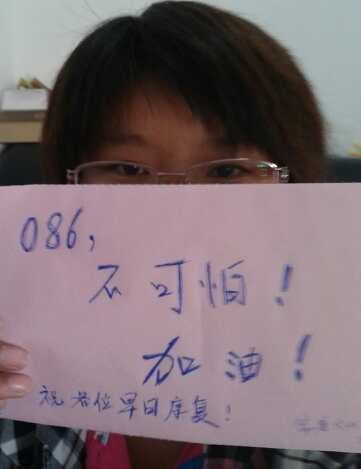 086,
不可怕!
加油!
祝各位早日康复!